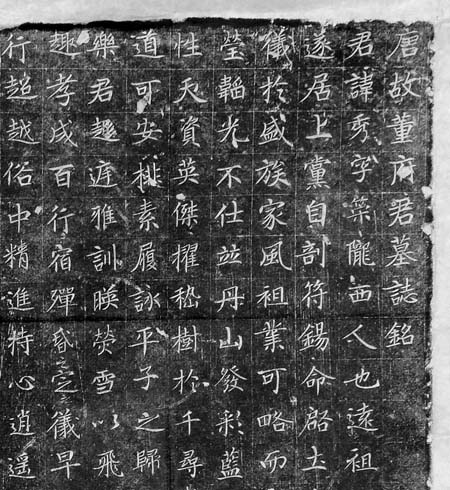 唐故董府君墓誌銘
君諱秀字隴西人也遠祖
遂居上黨自剖符錫命啟土
儀於盛族家風祖業可略而
瑩韜光不仕並丹山發彩藍
性天資英傑擢嵇樹於千尋
道可安排素履詠平子之歸
樂君趍庭雅訓暎熒雪以飛
趣孝成百行宿殫昏定儀早
行超越俗中精進特心逍遥